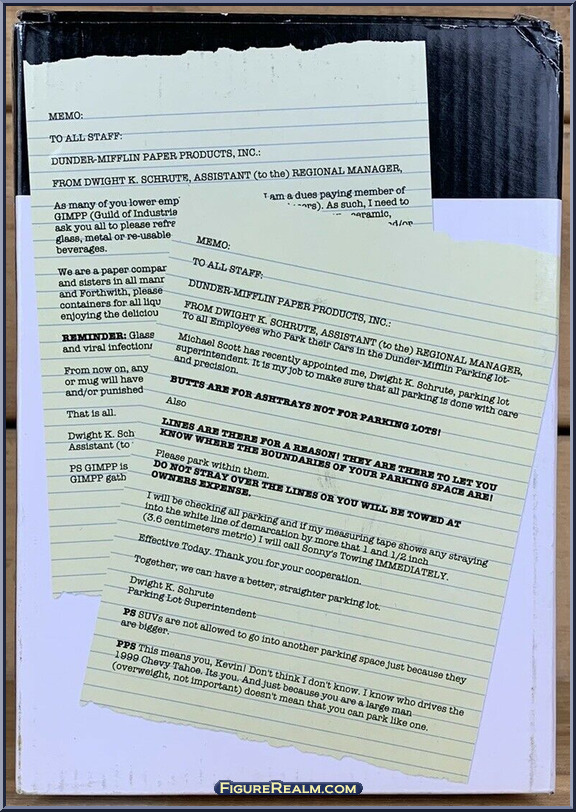 MEMO:
TO ALL STAFF:
DUNDER-MIFFLIN PAPER PRODUCTS, INC.:
FROM DWIGHT K. SCHRUTE, ASSISTANT (to the) REGIONAL MANAGER,
As many of you lower emp
I am a dues paying member of
GIMPP (Guild of Industria
As such, I need to
ask you all to please refra
ceramic,
glass, metal or re-usable
and/or
beverages.
We are a paper compan
and sisters in all mann
and Forthwith, please
containers for all liqu
enjoying the deliciou
REMINDER: Glass
and viral infection
From now on, any
or mug will have
and/or punished
That is all.
Dwight K. Sch
Assistant (to
PS GIMPP is
GIMPP gath
MEMO:
TO ALL STAFF:
DUNDER-MIFFLIN PAPER PRODUCTS, INC.:
FROM DWIGHT K. SCHRUTE, ASSISTANT (to the) REGIONAL MANAGER,
To all Employees who Park their Cars in the Dunder-Mifflin Parking lot-
Michael Scott has recently appointed me, Dwight K. Schrute, parking lot
superintendent. It is my job to make sure that all parking is done with care
and precision.
BUTTS ARE FOR ASHTRAYS NOT FOR PARKING LOTS!
Also
LINES ARE THERE FOR A REASON! THEY ARE THERE TO LET YOU
KNOW WHERE THE BOUNDARIES OF YOUR PARKING SPACE ARE!
Please park within them.
DO NOT STRAY OVER THE LINES OR YOU WILL BE TOWED AT
OWNERS EXPENSE.
I will be checking all parking and if my measuring tape shows any straying
into the white line of demarcation by more that 1 and 1/2 inch
(3.6 centimeters metric) I will call Sonny's Towing IMMEDIATELY.
Effective Today. Thank you for your cooperation.
Together, we can have a better, straighter parking lot.
Dwight K. Schrute
Parking Lot Superintendent
PS SUVs are not allowed to go into another parking space just because they
are bigger.
PPS This means you, Kevin! Don't think I don't know. I know who drives the
1999 Chevy Tahoe. Its you. And just because you are a large man
(overweight, not important) doesn't mean that you can park like one.
FIGUREREALM.COM